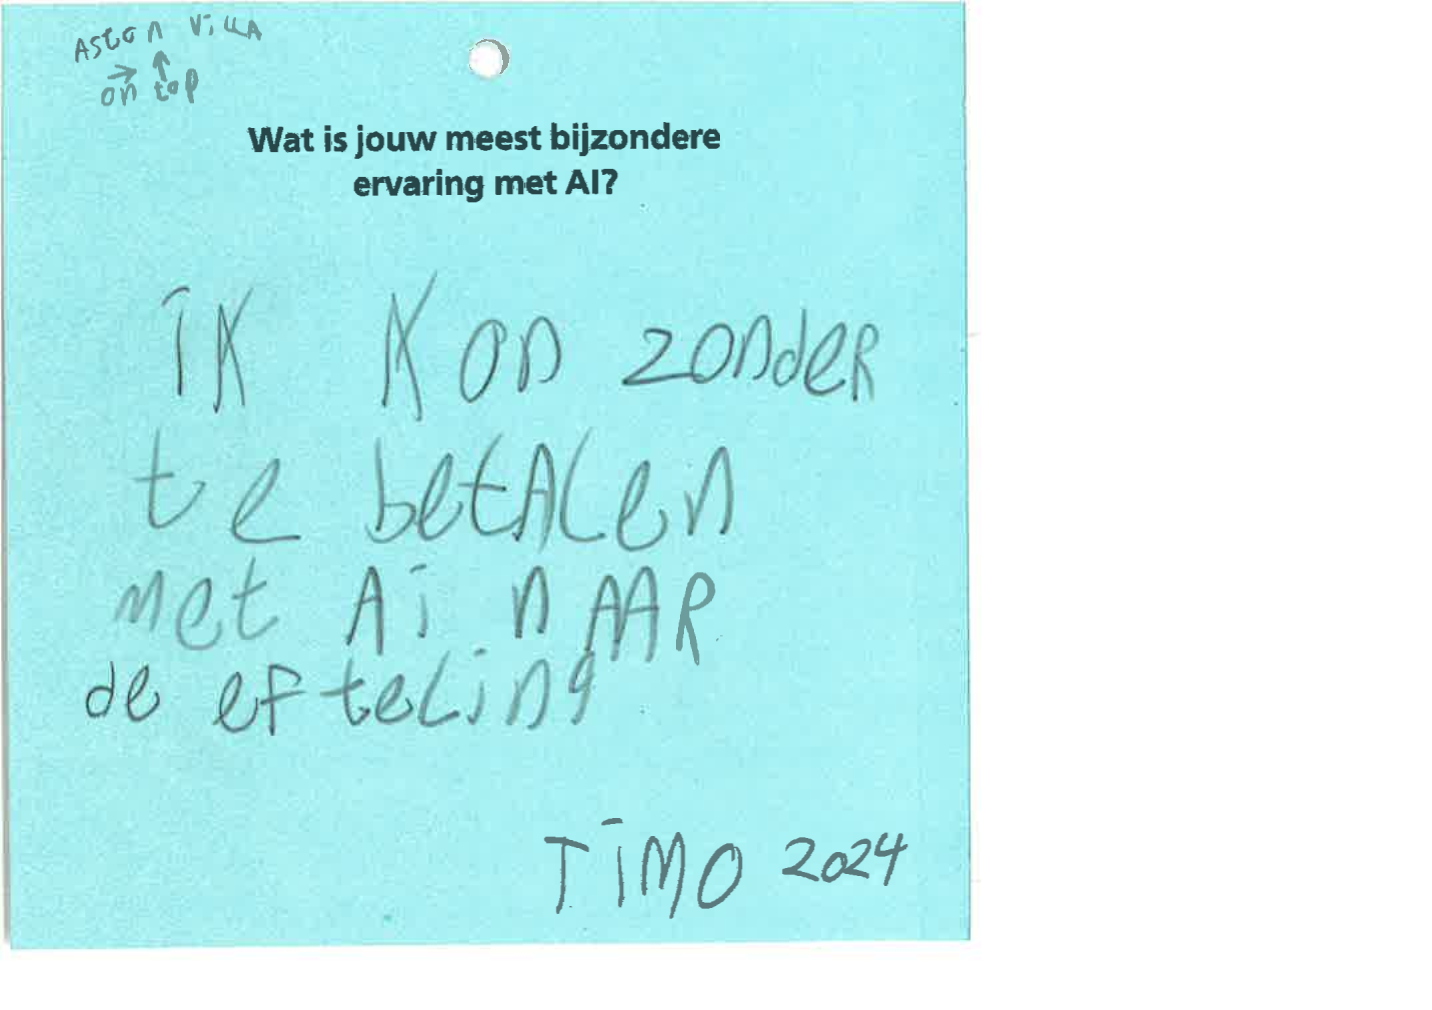 Aston Villa
→ ↑
on top
Wat is jouw meest bijzondere
ervaring met AI?
iK Kon zonder
te betalen
met Ai nAAR
de efteling
TiMO 2024